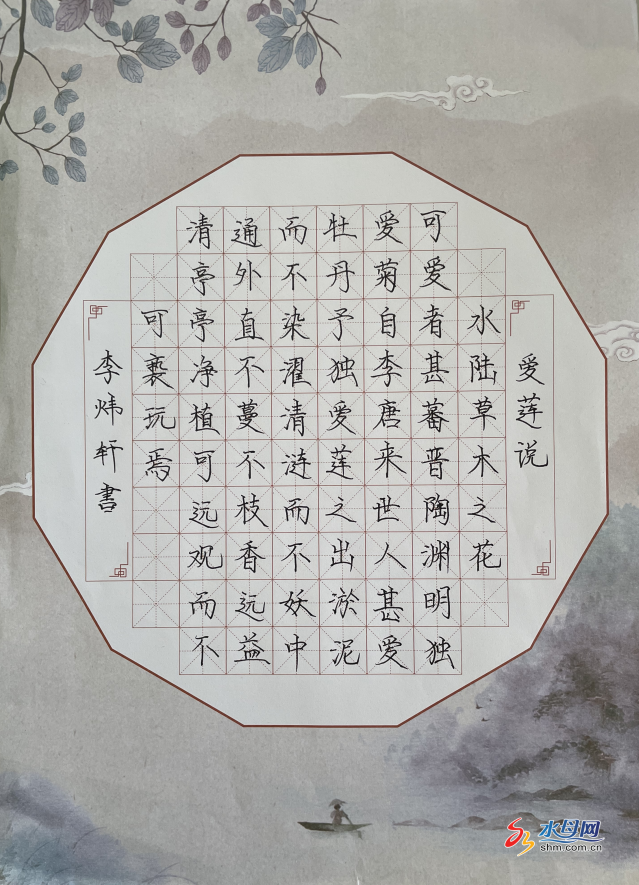 爱莲说
水陆草木之花
可爱者甚蕃晋陶渊明独
爱菊自李唐来世人甚爱
牡丹予独爱莲之出淤泥
而不染濯清涟而不妖中
通外直不蔓不枝香远益
清亭亭净植可远观而不
可亵玩焉
李炜轩書
水母网
shm.com.cn